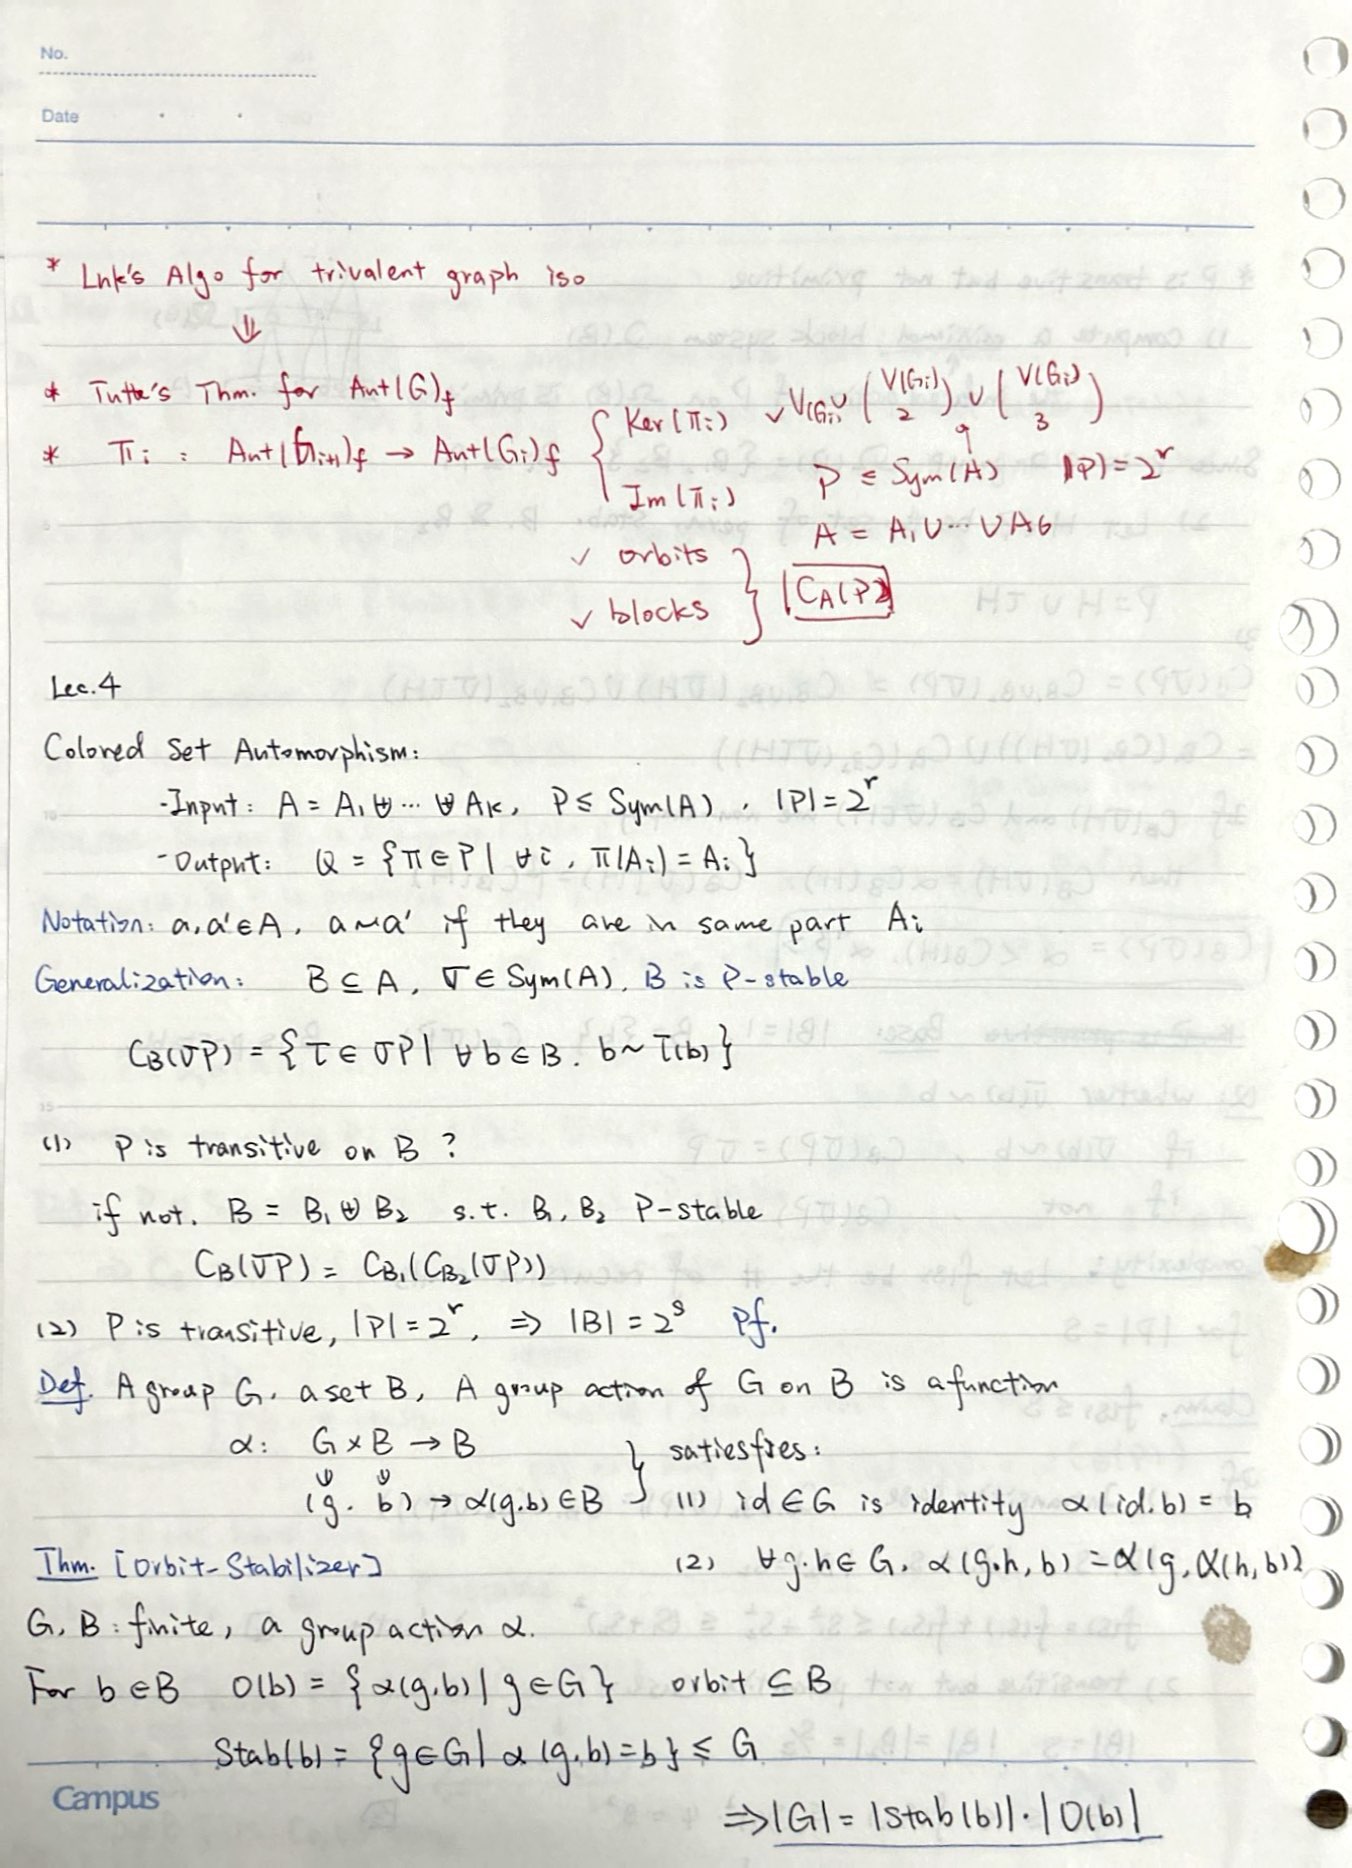 No.
Date
* Luk's Algo for trivalent graph iso
⇓
* Tutte's Thm. for Aut(G)_f
* π_i : Aut(G_{i+1})_f → Aut(G_i)_f { Ker(π_i) ✓ V(G_i) ∪ (V(G_i) 2) ∪ (V(G_i) 3)
Im(π_i) P ≤ Sym(A) |P| = 2^r
A = A_1 ∪ ... ∪ A_6
✓ orbits
✓ blocks } C_A(P)
Lec.4
Colored Set Automorphism:
-Input: A = A_1 ⊎ ... ⊎ A_k, P ≤ Sym(A), |P| = 2^r
-Output: Q = {π ∈ P | ∀i, π(A_i) = A_i}
Notation: a, a' ∈ A, a ~ a' if they are in same part A_i
Generalization: B ⊆ A, σ ∈ Sym(A), B is P-stable
C_B(σP) = {τ ∈ σP | ∀b ∈ B. b ~ τ(b)}
(1) P is transitive on B ?
if not. B = B_1 ⊎ B_2 s.t. B_1, B_2 P-stable
C_B(σP) = C_{B_1}(C_{B_2}(σP))
(2) P is transitive, |P| = 2^r, ⇒ |B| = 2^s Pf.
Def. A group G, a set B, A group action of G on B is a function
α: G × B → B } satiesfies:
(g, b) → α(g,b) ∈ B (1) id ∈ G is identity α(id, b) = b
Thm. [Orbit-Stabilizer] (2) ∀g,h ∈ G, α(g·h, b) = α(g, α(h, b))
G, B : finite, a group action α.
For b ∈ B O(b) = {α(g,b) | g ∈ G} orbit ⊆ B
Stab(b) = {g ∈ G | α(g,b) = b} ≤ G
Campus
⇒ |G| = |Stab(b)| · |O(b)|